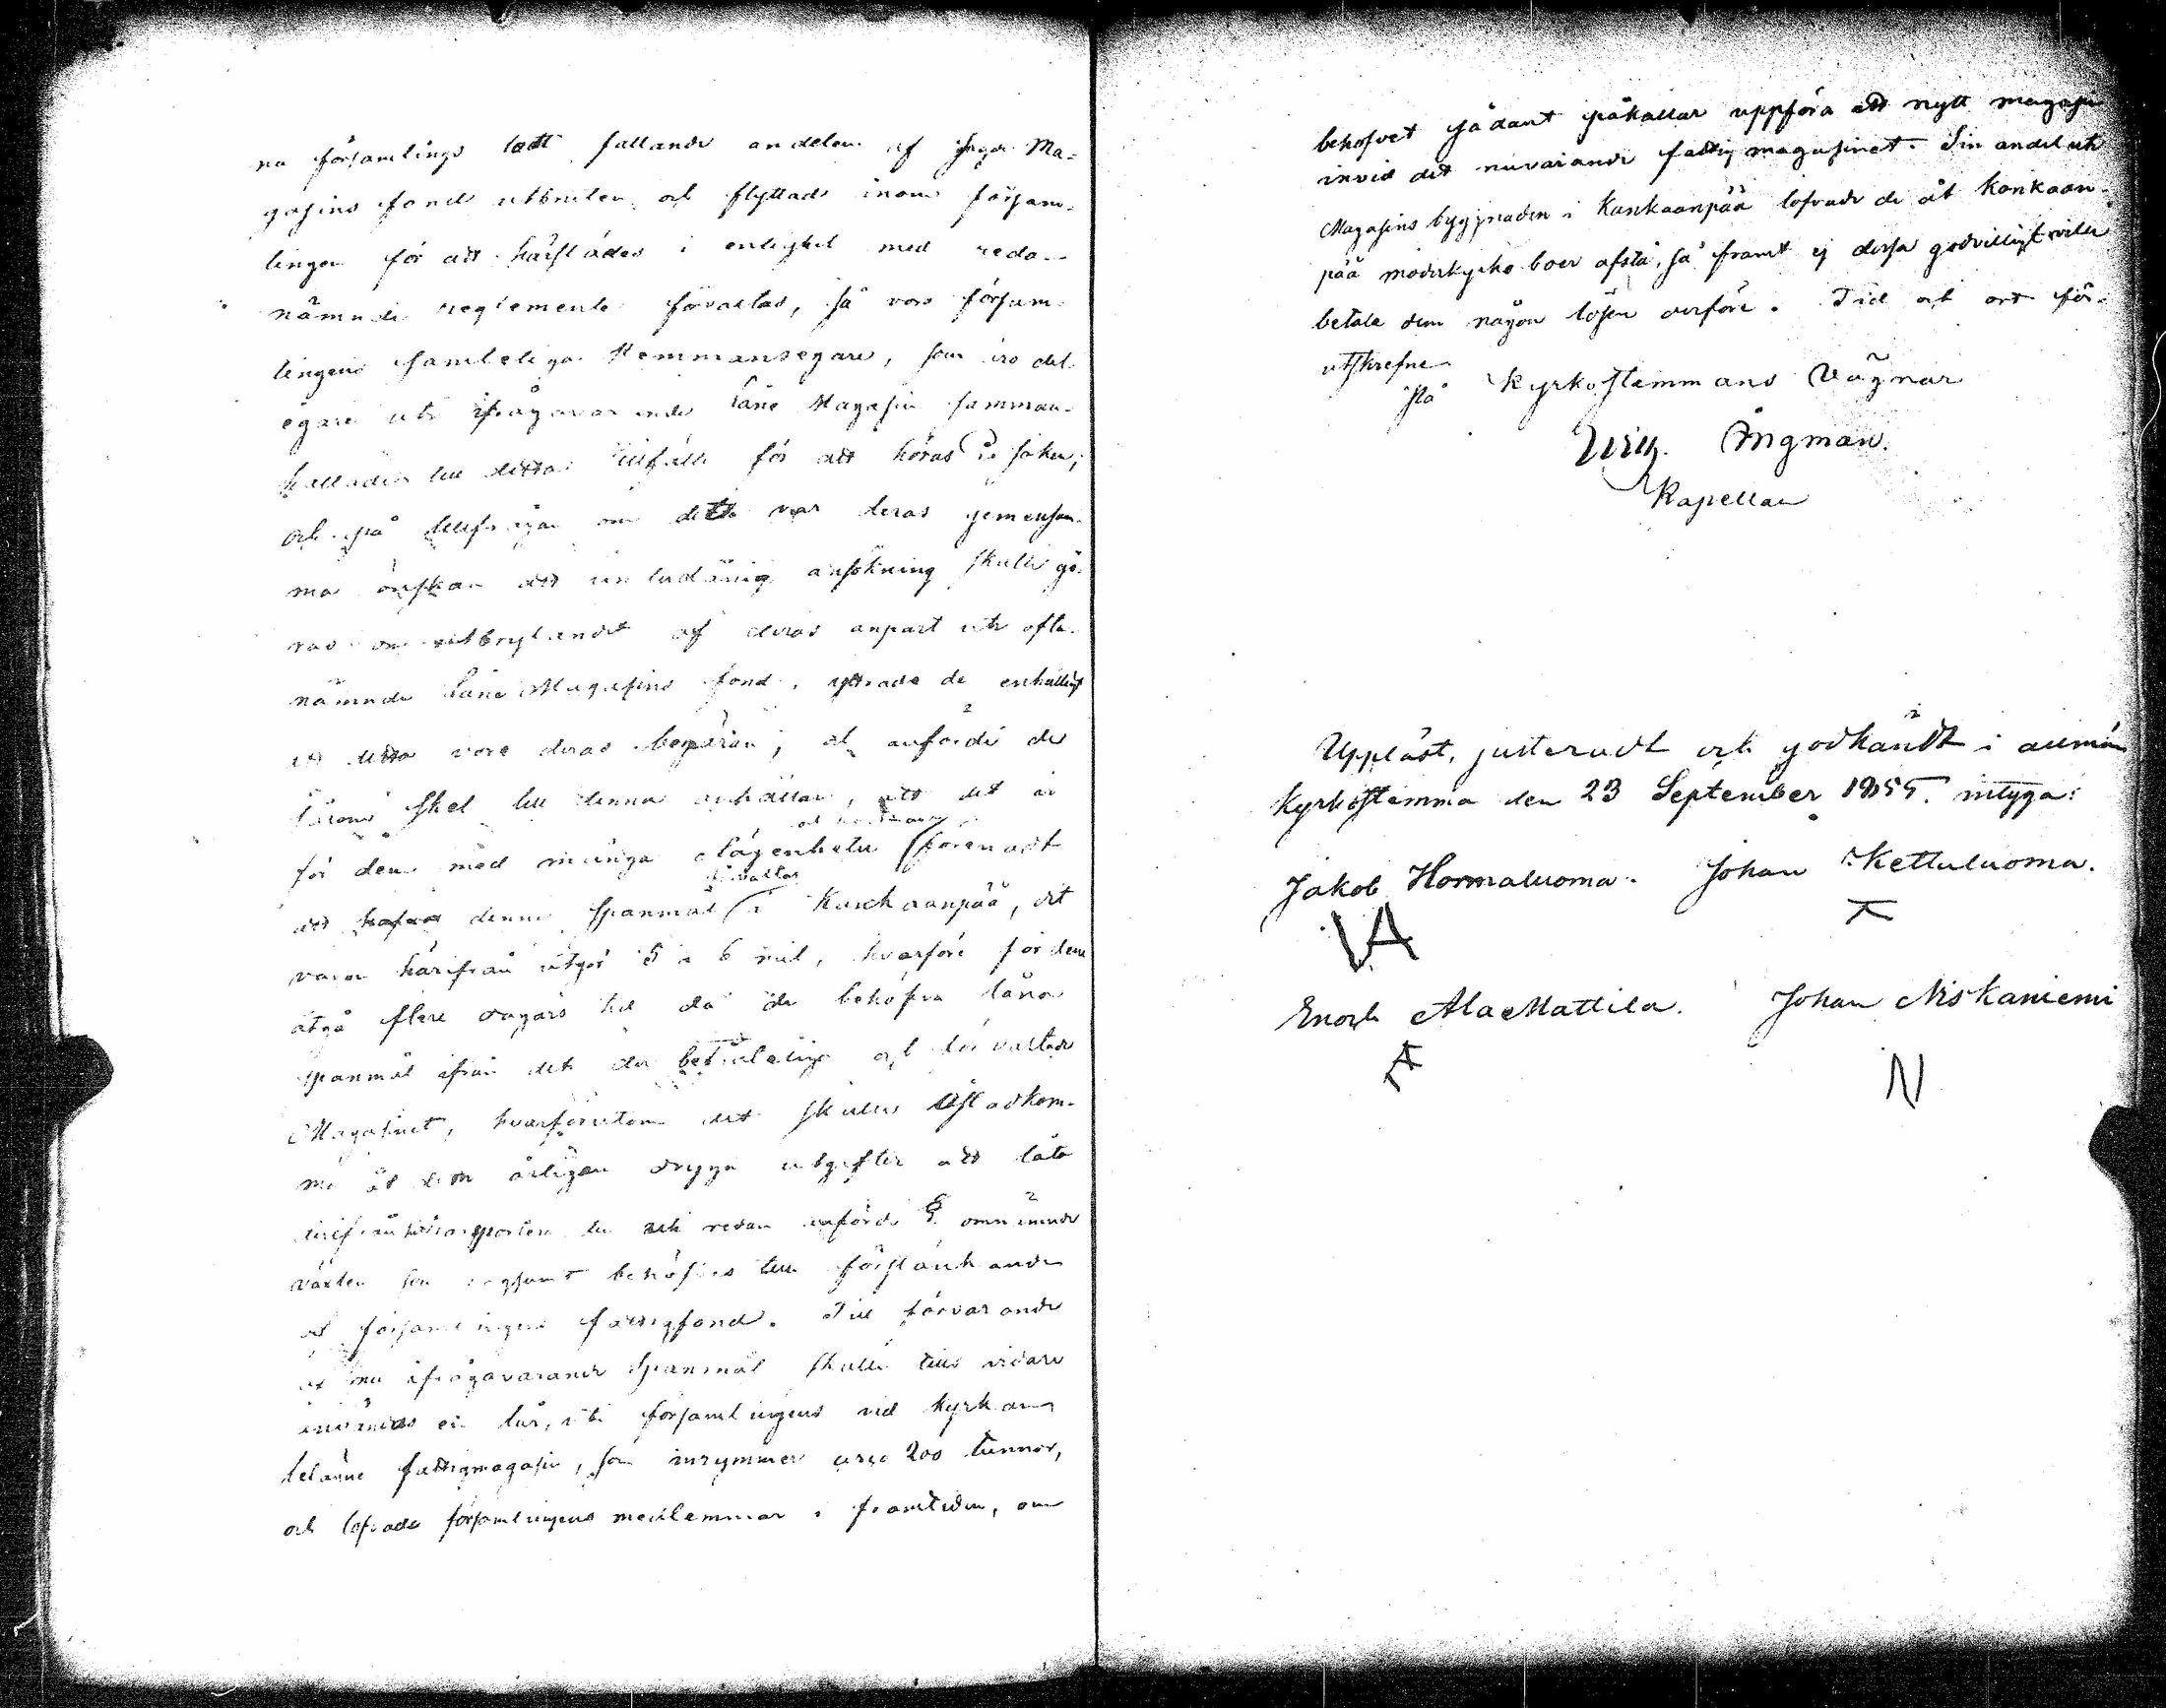 na församlings lott fallande andelen af sagde Ma-
gasins fond utbruten och flyttad inom försam-
lingen för att härstädes i enlighet med reda-
nämnde reglemente förvaltas, så vore försam-
lingens samteliga Hemmansegare, som äro del-
egare uti ifrågavarande Låne Magasin samman-
kallade till detta tillfälle för att höras i saken,
och på tillfrågan om detta var deras gemensam-
ma önskan att underdånig ansökning skulle gö-
ras om utbrytandet af deras anpart uti ofta-
nämnde Låne Magasins fond, yttrade de enhälligt
att detta vore deras begäran; och anförde de
såsom skäl till denna anhållan, att det är
för dem med många olägenheter och kostnader förenadt
att hafva denna spanmål förvaltas i Kankaanpää, dit
vägen härifrån utgör 5 a 6 mil, hvarföre för dem
åtgå flere dagars tid då de behöfva låna
spanmål ifrån det der befinteliga och förvaltade
Magasinet, hvarförutom det skulle åstadkom-
ma åt dem årligen dryga utgifter att låta
derifrån transportera den uti redan anförde § omnämnde
växten som årligen behöfves till förstärkande
af församlingens fattigfond. Till förvarande
af nu ifrågavarande Spanmål skulle tills vidare
användas en lår, uti församlingens vid kyrkan
belägne fattigmagasin, som inrymmer circa 200 tunnor,
och lofvade församlingens medlemmar i framtiden, om
behofvet sådant påkallar uppföra ett nytt magasin
invid det nuvarande fattigmagasinet. Sin andel uti
Magasins byggnaden i Kankaanpää lofvade de åt Kankaan-
pää moderkyrko boer afstå, så framt ej dessa godvilligt ville
betala dem någon lösen derföre. Tid och ort för-
utskrefne
På Kyrkostemmans Vägnar
Wilh. Ingman.
Kapellan
Uppläst, justeradt och godkändt i allmän
Kyrkostemma den 23 September 1855. intyga:
Jakob Hormaluoma. Johan Kettuluoma.
Enoch AlaMattila. Johan Niskaniemi
N